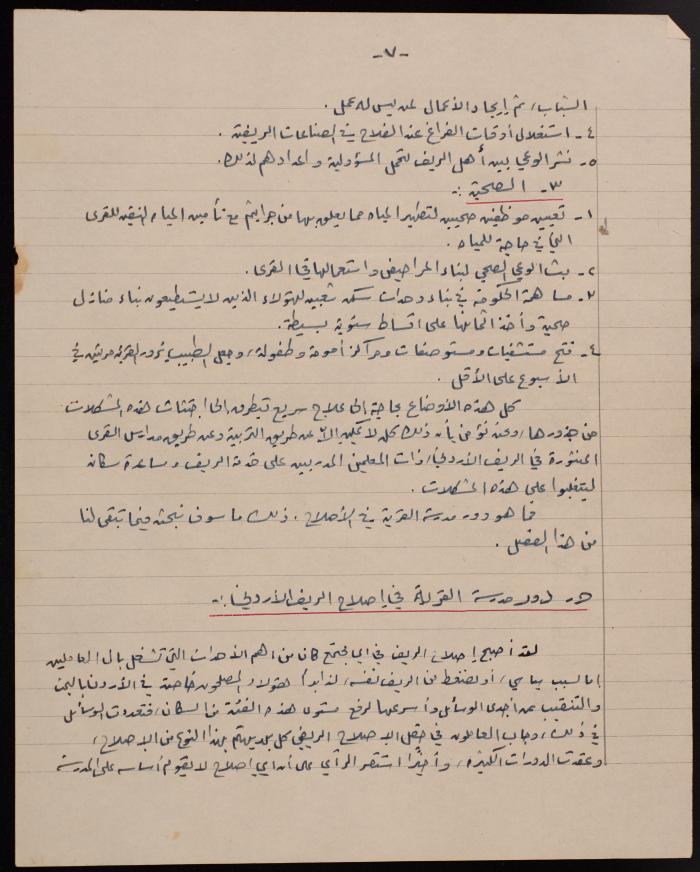 -٧-
الشباب، ثم إيجاد الأعمال لمن ليس له عمل.
٤- استغلال أوقات الفراغ عند الفلاح في الصناعات الريفية.
٥- نشر الوعي بين أهل الريف لتحمل المسؤولية واعدادهم لذلك.
٣- الصحية :-
١- تعيين موظفين صحيين لتطهير المياه مما يعلق بها من جراثيم مع تأمين المياه النقية للقرى
التي في حاجة للمياه.
٢- بث الوعي الصحي لبناء المراحيض واستعمالها في القرى.
٣- مساهمة الحكومة في بناء وحدات سكن شعبية لهؤلاء الذين لا يستطيعون بناء منازل
صحية وأخذ اثمانها على اقساط سنوية بسيطة.
٤- فتح مستشفيات ومستوصفات ومراكز أمومة وطفولة، وجعل الطبيب يزور القرية مرتين في
الأسبوع على الأقل.
كل هذه الأوضاع بحاجة الى علاج سريع تتطرق الى اجتثاث هذه المشكلات
من جذورها، ونحن نؤمن بأن ذلك كله لا يكون الا عن طريق التربية وعن طريق مدارس القرى
المنثورة في الريف الأردني، ذات المعلمين المدربين على خدمة الريف ومساعدة سكانه
ليتغلبوا على هذه المشكلات.
فما هو دور مدرسة القرية في الأصلاح. ذلك ما سوف نبحثه فيما تبقى لنا
من هذا الفصل.
هـ- دور مدرسة القرية في إصلاح الريف الأردني :-
لقد أصبح إصلاح الريف في أي مجتمع كان من اهم الأهداف التي تشغل بال العاملين
إما لسبب سياسي، أو لضغط من الريف نفسه، لذا بدأ هؤلاء المصلحون خاصة في الأردن بالبحث
والتنقيب عن أجدى الوسائل وأسرعها لرفع مستوى هذه الفئة من السكان، فتعددت الوسائل
في ذلك، وجاب العاملون في حقل الاصلاح الريفي كل بلد يهتم بهذا النوع من الاصلاح،
وعقدت الدورات الكثيرة، وأخيرًا استقر الرأي على أن أي إصلاح لا يقوم أساسه على المدرسة